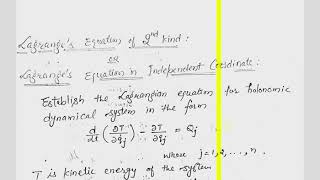 Lagrange's Equation of 2nd kind :
OR
Lagrange's Equation in Independent Coordinate :
Establish the Lagrangian equation for holonomic
dynamical system in the form
d/dt (∂T/∂q̇j) - ∂T/∂qj = Qj
where j = 1, 2, ..., n.
T is kinetic energy of the system